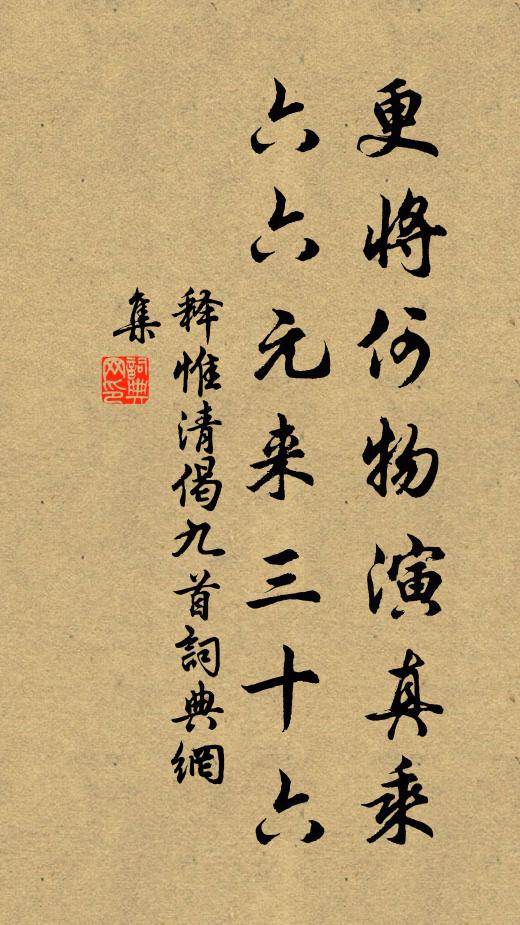 更将何物演真乘
六六元来三十六
释惟清偈九首詞典網
集
詞典
网印